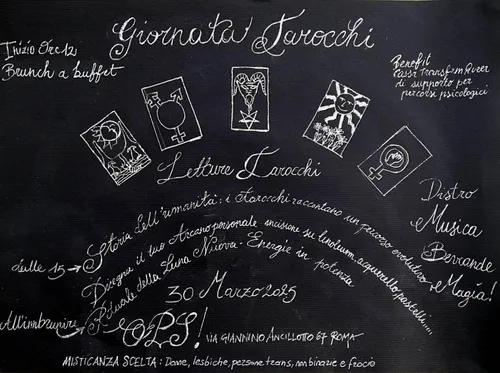 Giornata Tarocchi
Inizio Ore 12
Brunch a buffet
Benefit
Cassa TransFemQueer
di supporto per
percorsi psicologici
Letture Tarocchi
dalle 15 → Storia dell'umanità: i Tarocchi raccontano un percorso evolutivo
Disegna il tuo Arcano personale: incisione su linoleum, acquerello, pastelli.....
All'imbrunire → Rituale della Luna Nuova: Energie in potenza
Distro
Musica
Bevande
e Magia!
30 Marzo 2025
OPS! VIA GIANNINO ANCILLOTTO 67 ROMA
MISTICANZA SCELTA: Donne, lesbiche, persone trans, non binarie e frocio